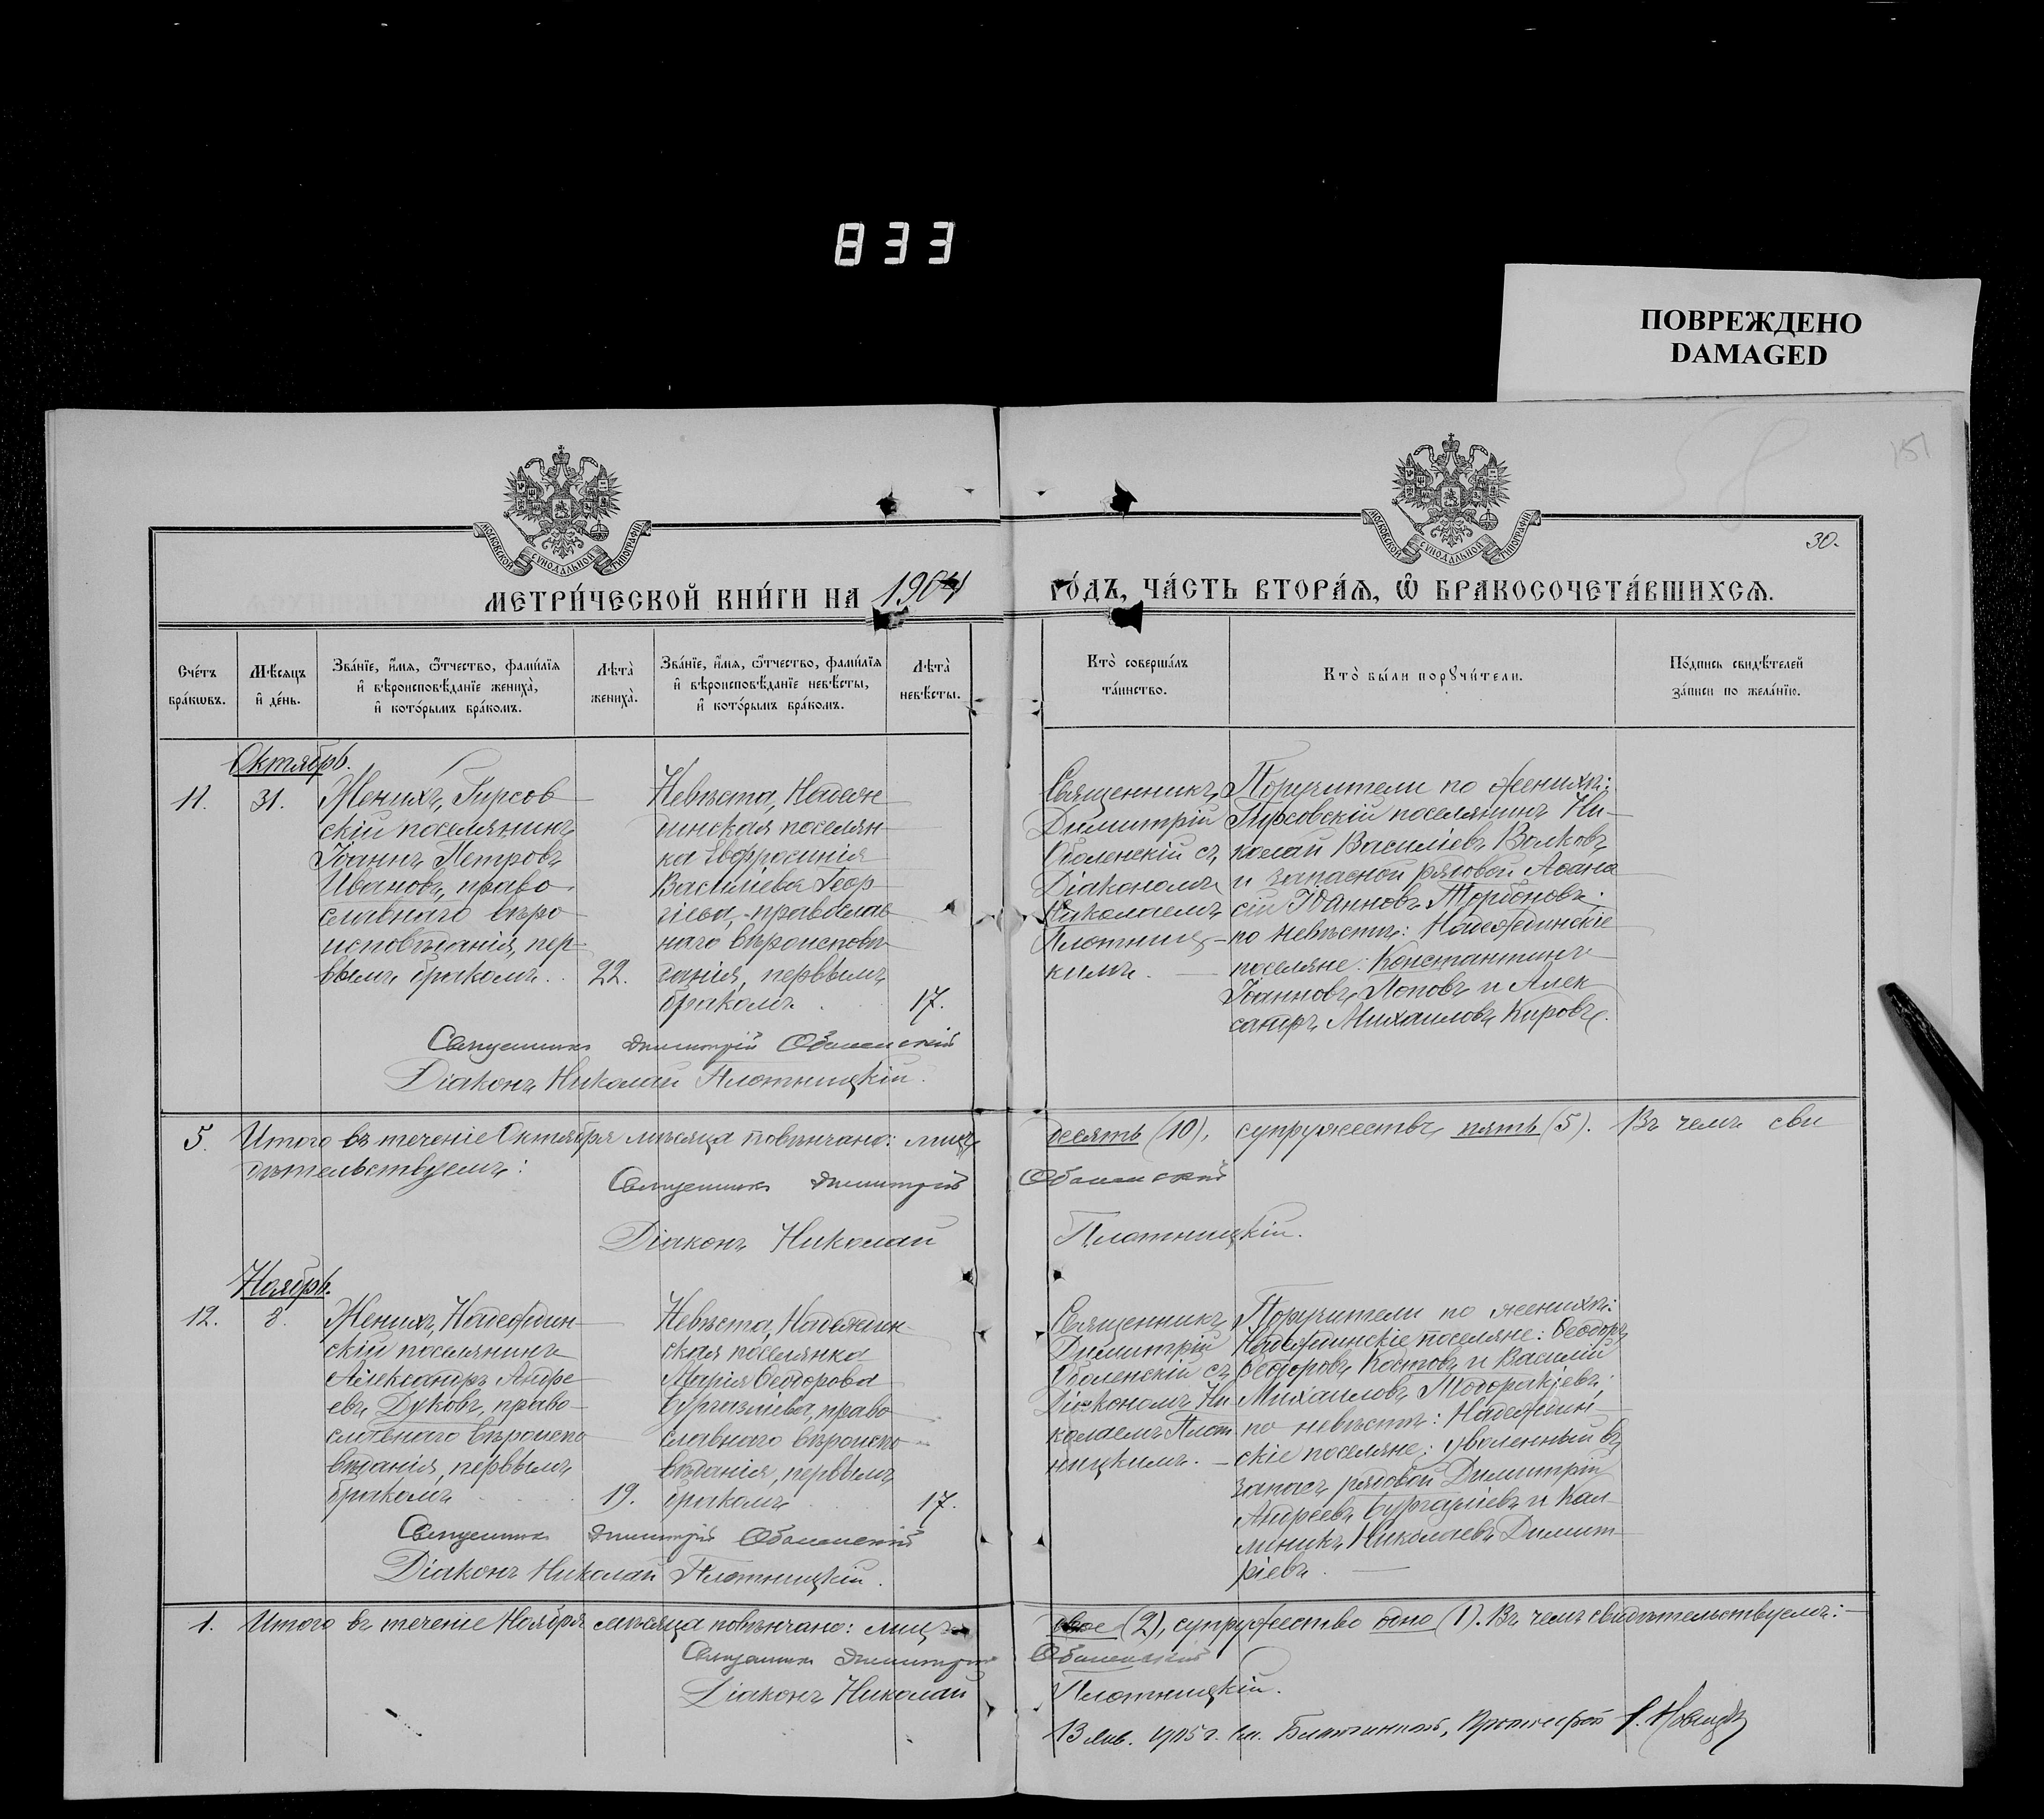 833
ПОВРЕЖДЕНО
DAMAGED
151
30.
МОСКОВСКОЙ СѴНОДАЛЬНОЙ ТИПОГРАФІИ
МОСКОВСКОЙ СѴНОДАЛЬНОЙ ТИПОГРАФІИ
МЕТРИ́ЧЕСКОЙ КНИ́ГИ НА 1904
ГО́ДЪ, ЧА́СТЬ ВТОРА́Ѧ, Ѽ БРАКОСОЧЕТА́ВШИХСѦ.
Сче́тъ
бра́кѡвъ.
Мѣ́сѧцъ
и҆ де́нь.
Зва́нїе, и҆́мѧ, ѻ҆́тчество, фами́лїѧ
и҆ вѣроисповѣ́данїе жениха̀,
и҆ кото́рымъ бра́комъ.
Лѣта̀
жениха̀.
Зва́нїе, и҆́мѧ, ѻ҆́тчество, фами́лїѧ
и҆ вѣроисповѣ́данїе невѣ́сты,
и҆ кото́рымъ бра́комъ.
Лѣта̀
невѣ́сты.
Кто̀ соверша́лъ
та́инство.
Кто̀ бы́ли порꙋчи́тели.
По́дпись свидѣ́телей
за́писи по жела́нїю.
Октябрь.
11.
31.
Женихъ, Гирсов
скій поселянинъ
Іоаннъ Петровъ
Ивановъ, право
славнаго вѣро
исповѣданія, пер
вымъ бракомъ.
22.
Невѣста, Надеж
динская поселян
ка Евфросинія
Василіева Геор
гіева, православ
наго вѣроисповѣ
данія, первымъ
бракомъ
17.
Священникъ
Димитрій
Оболенскій съ
Діакономъ
Николаемъ
Плотниц
кимъ.
Поручители по женихѣ:
Гирсовскій поселянинъ Ни
колай Василіевъ Волковъ
и запасной рядовой Аѳана
сій Іоанновъ Торбоновъ.
по невѣстѣ: Надеждинскіе
поселяне: Константинъ
Іоанновъ Поповъ и Алек
сандръ Михаиловъ Кировъ.
Священникъ Димитрій Оболенскій
Діаконъ Николай Плотницкій.
5. Итого въ теченіе Октября мѣсяца повѣнчано: лицъ десять (10), супружествъ пять (5). Въ чемъ сви
дѣтельствуемъ:
Священникъ Димитрій Оболенскій
Діаконъ Николай Плотницкій.
Ноябрь.
12.
8.
Женихъ, Надеждин
скій поселянинъ
Александръ Андре
евъ Дуковъ, право
славнаго вѣроиспо
вѣданія, первымъ
бракомъ
19.
Невѣста, Надеждин
ская поселянка
Марія Ѳеодорова
Бургазліева, право
славнаго вѣроиспо
вѣданія, первымъ
бракомъ
17.
Священникъ
Димитрій
Оболенскій съ
Діакономъ Ни
колаемъ Плот
ницкимъ.
Поручители по женихѣ:
Надеждинскіе поселяне: Ѳеодоръ
Ѳеодоровъ Костовъ и Василій
Михаиловъ Тодоракіевъ;
по невѣстѣ: Надеждин
скіе поселяне: уволенный въ
запасъ рядовой Димитрій
Андреевъ Бургазліевъ и Кал
линикъ Николаевъ Димит
ріевъ.
Священникъ Димитрій Оболенскій
Діаконъ Николай Плотницкій.
1. Итого въ теченіе Ноября мѣсяца повѣнчано: лицъ двое (2), супружество одно (1). Въ чемъ свидѣтельствуемъ:
Священникъ Димитрій Оболенскій
Діаконъ Николай Плотницкій.
13 Янв. 1905 г. Благочинный, Протоіерей